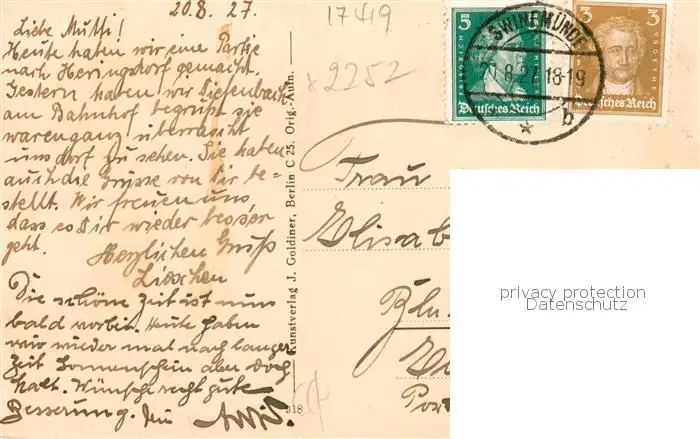 20.8.27.
Liebe Mutti!
Heute haben wir eine Partie
nach Heringsdorf gemacht.
Gestern haben wir Diefenbach
am Bahnhof begrüßt sie
waren ganz überrascht
uns dort zu sehen. Sie haben
auch die Grüsse von Dir be=
stellt. Wir freuen uns,
dass es Dir wieder besser
geht.
Herzlichen Gruß
Lieschen
Die schöne Zeit ist nun
bald vorbei. Heute haben
wir wieder mal nach langer
Zeit Sonnenschein aber doch
kalt. Wünsche recht gute
Besserung. Dein
17419
x 2252
Kunstverlag J. Goldiner, Berlin C 25. Orig.-Aufn.
318
5 5
FRIEDRICH
Deutsches Reich
3 3
Deutsches Reich
SWINEMÜNDE
8.27.18-19
* b
Frau
Elisab
Bln.
privacy protection
Datenschutz